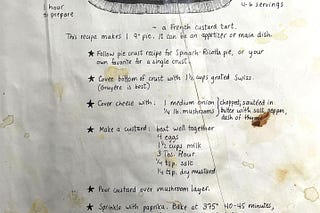 1 hour
to prepare
4-6 servings
- a French custard tart.
This recipe makes 1 9" pie. It can be an appetizer or main dish.
★ Follow pie crust recipe for Spinach-Ricotta pie, or your
own favorite for a single crust.
★ Cover bottom of crust with 1½ cups grated Swiss.
(Gruyère is best)
★ Cover cheese with: 1 medium onion } chopped, sautéed in
¼ lb. mushrooms } butter with salt, pepper,
dash of thyme
★ Make a custard: beat well together
4 eggs
1½ cups milk
3 Tbs. flour
¼ tsp. salt
¼ tsp. dry mustard
★ Pour custard over mushroom layer.
★ Sprinkle with paprika. Bake at 375° 40-45 minutes,